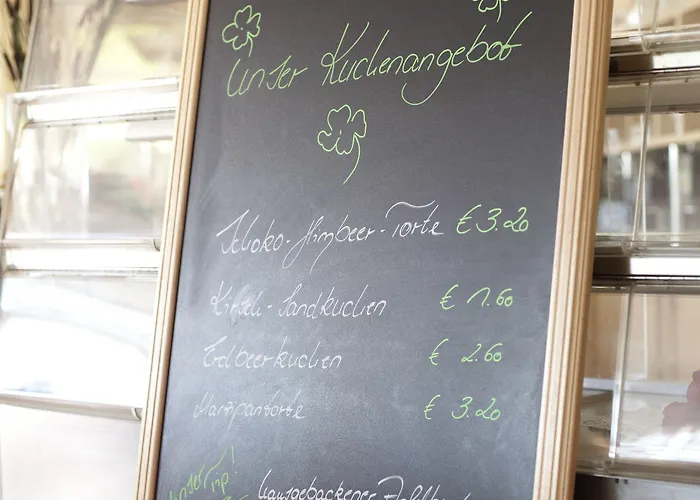 Unser Kuchenangebot
Schoko-Himbeer-Torte € 3.20
Kirsch-Sandkuchen € 1.60
Erdbeerkuchen € 2.60
Marzipantorte € 3.20
Unser Tip!
hausgebackener